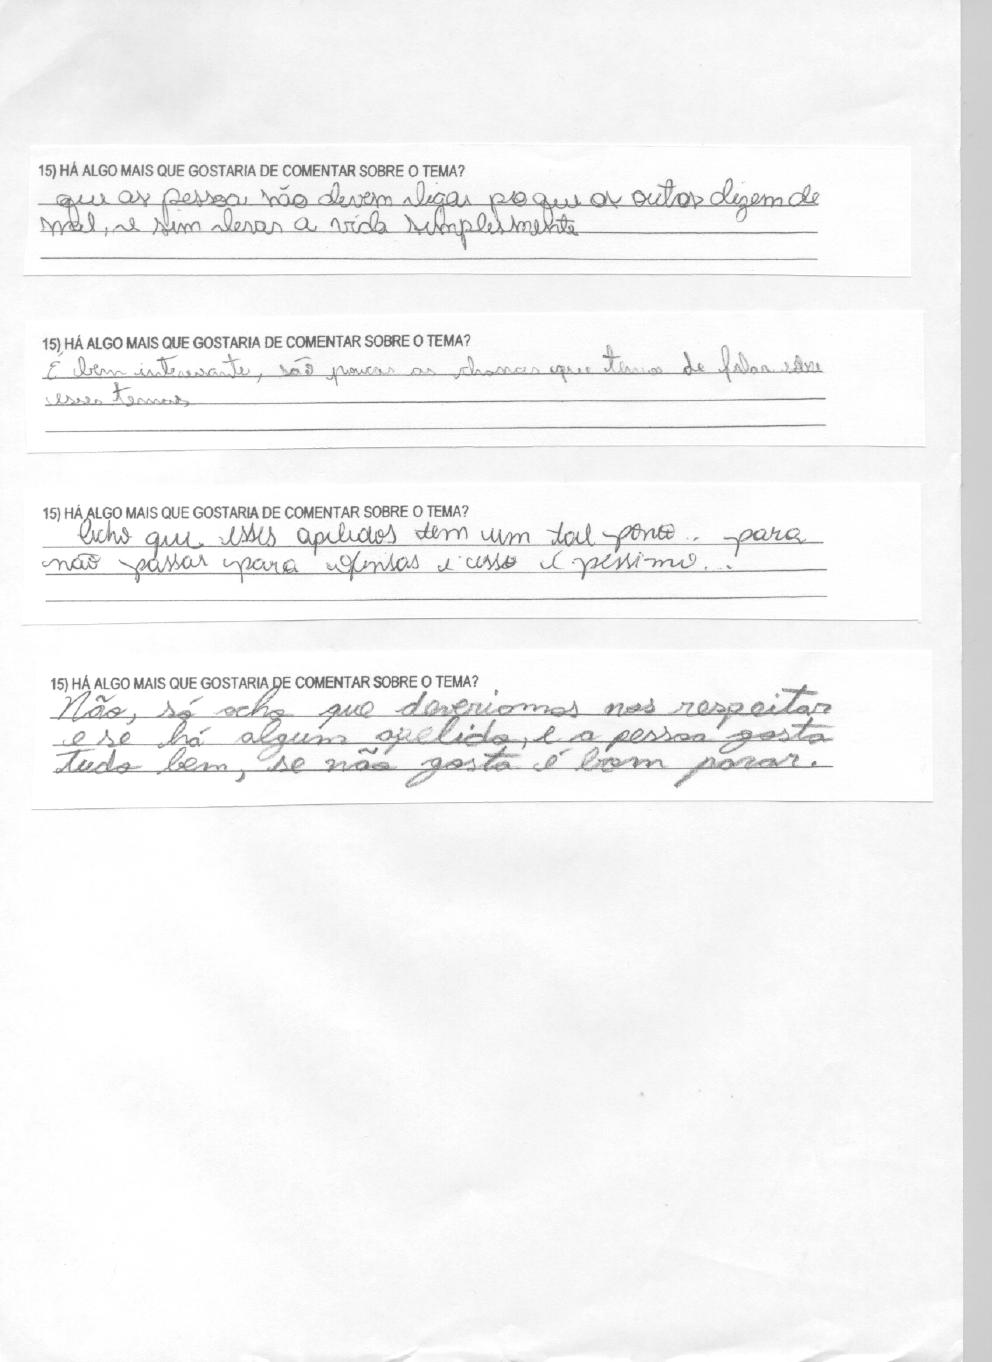 15) HÁ ALGO MAIS QUE GOSTARIA DE COMENTAR SOBRE O TEMA?
que as pessoa não devem ligar po que os outros dizem de
mal, e sim levar a vida simplesmente
15) HÁ ALGO MAIS QUE GOSTARIA DE COMENTAR SOBRE O TEMA?
É bem interessante, são poucas as chances que temos de falar sobre
esses temas
15) HÁ ALGO MAIS QUE GOSTARIA DE COMENTAR SOBRE O TEMA?
Acho que esses apelidos tem um tal ponto.. para
não passar para ofensas e isso é péssimo...
15) HÁ ALGO MAIS QUE GOSTARIA DE COMENTAR SOBRE O TEMA?
Não, só acho que deveriamos nos respeitar
e se há algum apelido, e a pessoa gosta
tudo bem, se não gosta é bom parar.